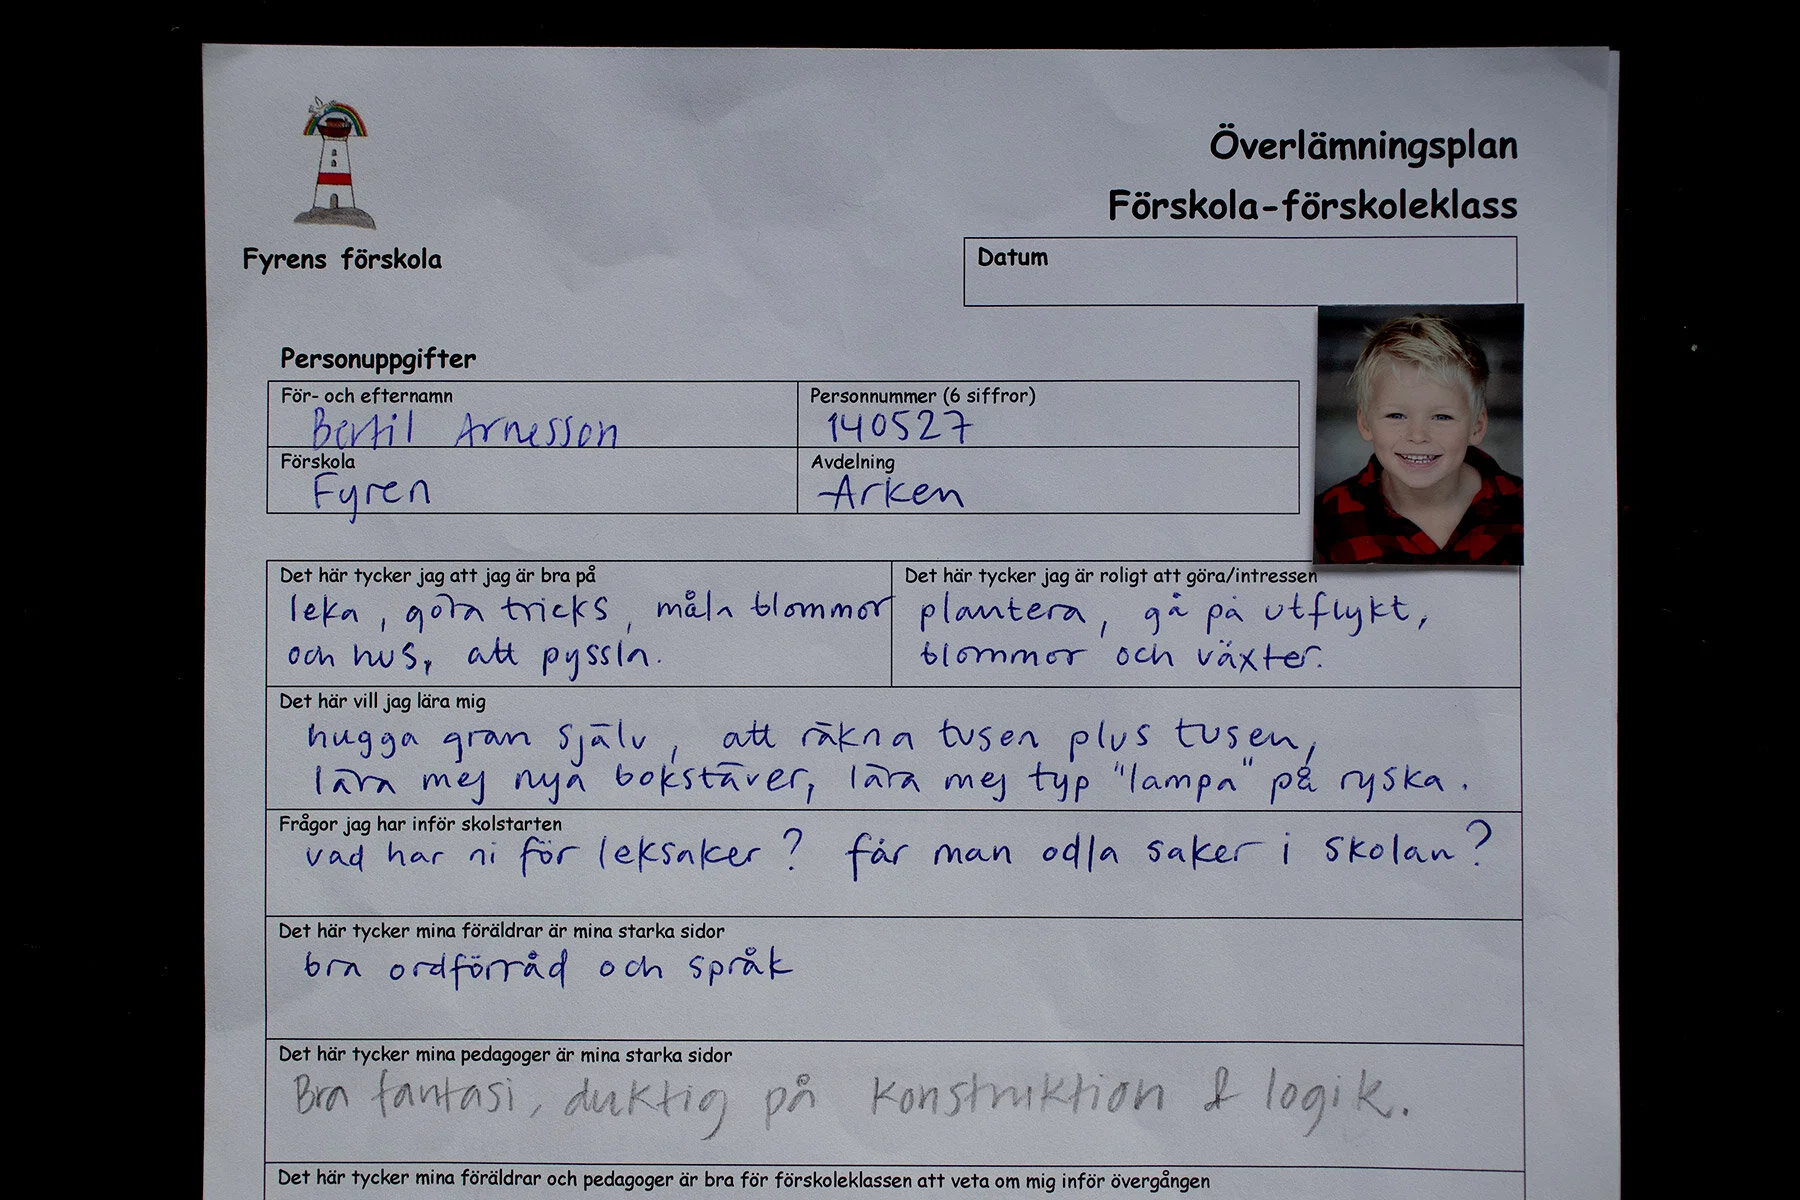 Överlämningsplan
Förskola-förskoleklass
Fyrens förskola
Datum
Personuppgifter
För- och efternamn
Bertil Arnesson
Personnummer (6 siffror)
140527
Förskola
Fyren
Avdelning
Arken
Det här tycker jag att jag är bra på
leka, göra tricks, måla blommor
och hus, att pyssla.
Det här tycker jag är roligt att göra/intressen
plantera, gå på utflykt,
blommor och växter.
Det här vill jag lära mig
hugga gran själv, att räkna tusen plus tusen,
lära mej nya bokstäver, lära mej typ "lampa" på ryska.
Frågor jag har inför skolstarten
vad har ni för leksaker? får man odla saker i skolan?
Det här tycker mina föräldrar är mina starka sidor
bra ordförråd och språk
Det här tycker mina pedagoger är mina starka sidor
Bra fantasi, duktig på konstruktion & logik.
Det här tycker mina föräldrar och pedagoger är bra för förskoleklassen att veta om mig inför övergången